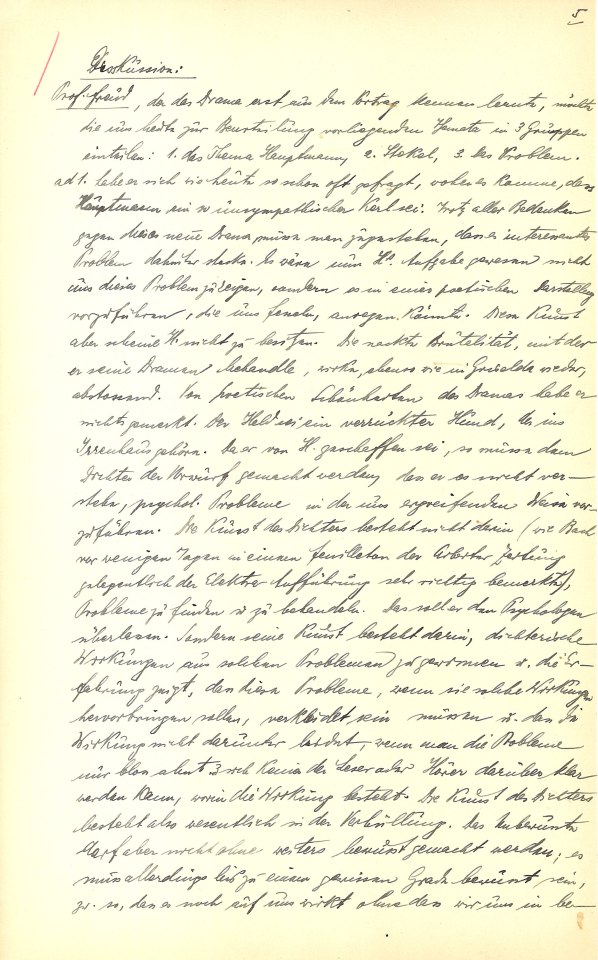 5
Diskussion:
Prof. Freud, der das Drama erst aus dem Vortrag kennen lernte, möchte
die uns heute zur Beurteilung vorliegenden Themata in 3 Gruppen
einteilen: 1. das Thema Hauptmann, 2. Stekel, 3. das Problem.
ad 1. habe er sich wie heute so schon oft gefragt, woher es komme, dass
Hauptmann ein so unsympathischer Kerl sei. Trotz aller Bedenken
gegen dieses neue Drama müsse man zugestehen, dass ein interessantes
Problem dahinter stecke. Es wäre nun H's. Aufgabe gewesen nicht
uns dieses Problem zu zeigen, sondern es in einer poetischen Darstellung
vorzuführen, die uns fesseln, anregen könnte. Diese Kunst
aber scheine H. nicht zu besitzen. Die nackte Brutalität, mit der
er seine Dramen behandle, wirke, ebenso wie in Griselda wieder,
abstossend. Von poetischen Schönheiten des Dramas habe er
nichts gemerkt. Der Held sei ein verrückter Hund, der ins
Irrenhaus gehöre. Da er von H. geschaffen sei, so müsse dem
Dichter der Vorwurf gemacht werden, dass er es nicht ver-
stehe, psychol. Probleme in der uns ergreifenden Weise vor-
zuführen. Die Kunst des Dichters besteht nicht darin (wie Bach
vor wenigen Tagen in einem Feuilleton der Arbeiter Zeitung
gelegentlich der Elektra Aufführung sehr richtig bemerkte),
Probleme zu finden u. zu behandeln. Das soll er den Psychologen
überlassen. Sondern seine Kunst besteht darin, dichterische
Wirkungen aus solchen Problemen zu gewinnen u. die Er-
fahrung zeigt, dass diese Probleme, wenn sie solche Wirkungen
hervorbringen sollen, verkleidet sein müssen u. dass die
Wirkung nicht darunter leidet, wenn man die Probleme
nur bloss ahnt u. sich keiner der Leser oder Hörer darüber klar
werden kann, worin die Wirkung besteht. Die Kunst des Dichters
besteht also wesentlich in der Verhüllung. Das Unbewusste
darf aber nicht ohne weiters bewusst gemacht werden; es
muss allerdings bis zu einem gewissen Grade bewusst sein,
zw. so, dass es noch auf uns wirkt ohne dass wir uns in be-